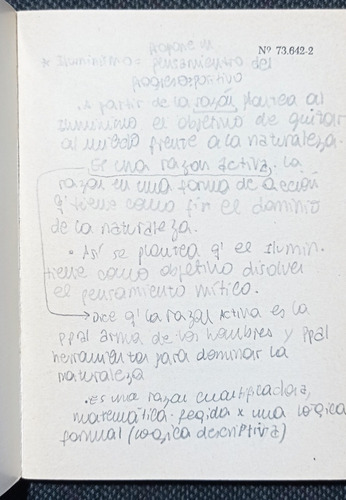 propone un
Nº 73.642-2
* Iluminismo = pensamiento del
progreso positivo
• A partir de la razón plantea al
iluminismo el objetivo de quitar
al miedo frente a la naturaleza.
- Es una razón activa, la
razón es una forma de acción
q' tiene como fin el dominio
de la naturaleza.
• Así se plantea q' el Ilumin.
tiene como objetivo disolver
el pensamiento mítico.
→ Dice q' la razón activa es la
ppal arma de los hombres y ppal
herramienta para dominar la
naturaleza
• Es una razón cuantificadora,
matemática. Regida x una lógica
formal (lógica descriptiva)